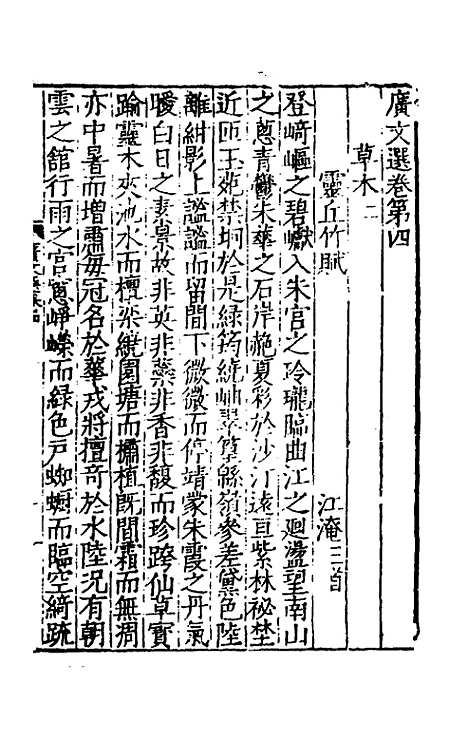 廣文選卷第四
草木二
靈丘竹賦 江淹三首
登崎嶇之碧巘入朱宮之玲瓏臨曲江之迴盪望南山
之蔥青鬱朱華之石岸赩夏彩於沙汀遠亘紫林祕埜
近匝玉苑禁坰於是綠筠繞岫翠篁緜嶺參差黛色陸
離紺影上謐謐而留間下微微而停靖蒙朱霞之丹氣
曖白日之素景故非英非蘂非香非馥而珍跨仙草寶
踰靈木夾池水而檀欒繞園塘而櫹植既間霜而無凋
亦中暑而增肅每冠名於華戎將擅奇於水陸況有朝
雲之館行雨之宮蔥崢嶸而綠色戶踟躕而臨空綺疏